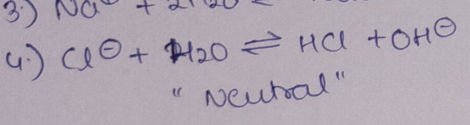 3.) Na
4.) Cl⊖ + H2O ⇌ HCl + OH⊖
"Neutral"